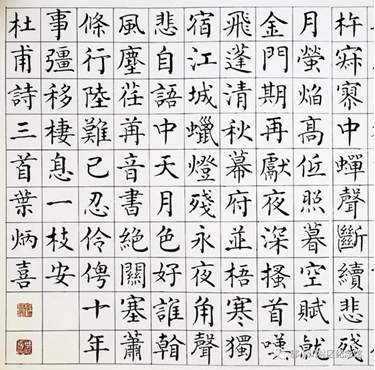 杵寂寥中蟬聲斷續悲殘
月螢焰髙低照暮空賦就
金門期再獻夜深搔首嘆
飛蓬清秋幕府並梧寒獨
宿江城蠟燈殘永夜角聲
悲自語中天月色好誰翰
風塵荏苒音書絕關塞蕭
條行陸難已忍伶俜十年
事彊移棲息一枝安
杜甫詩三首葉炳喜